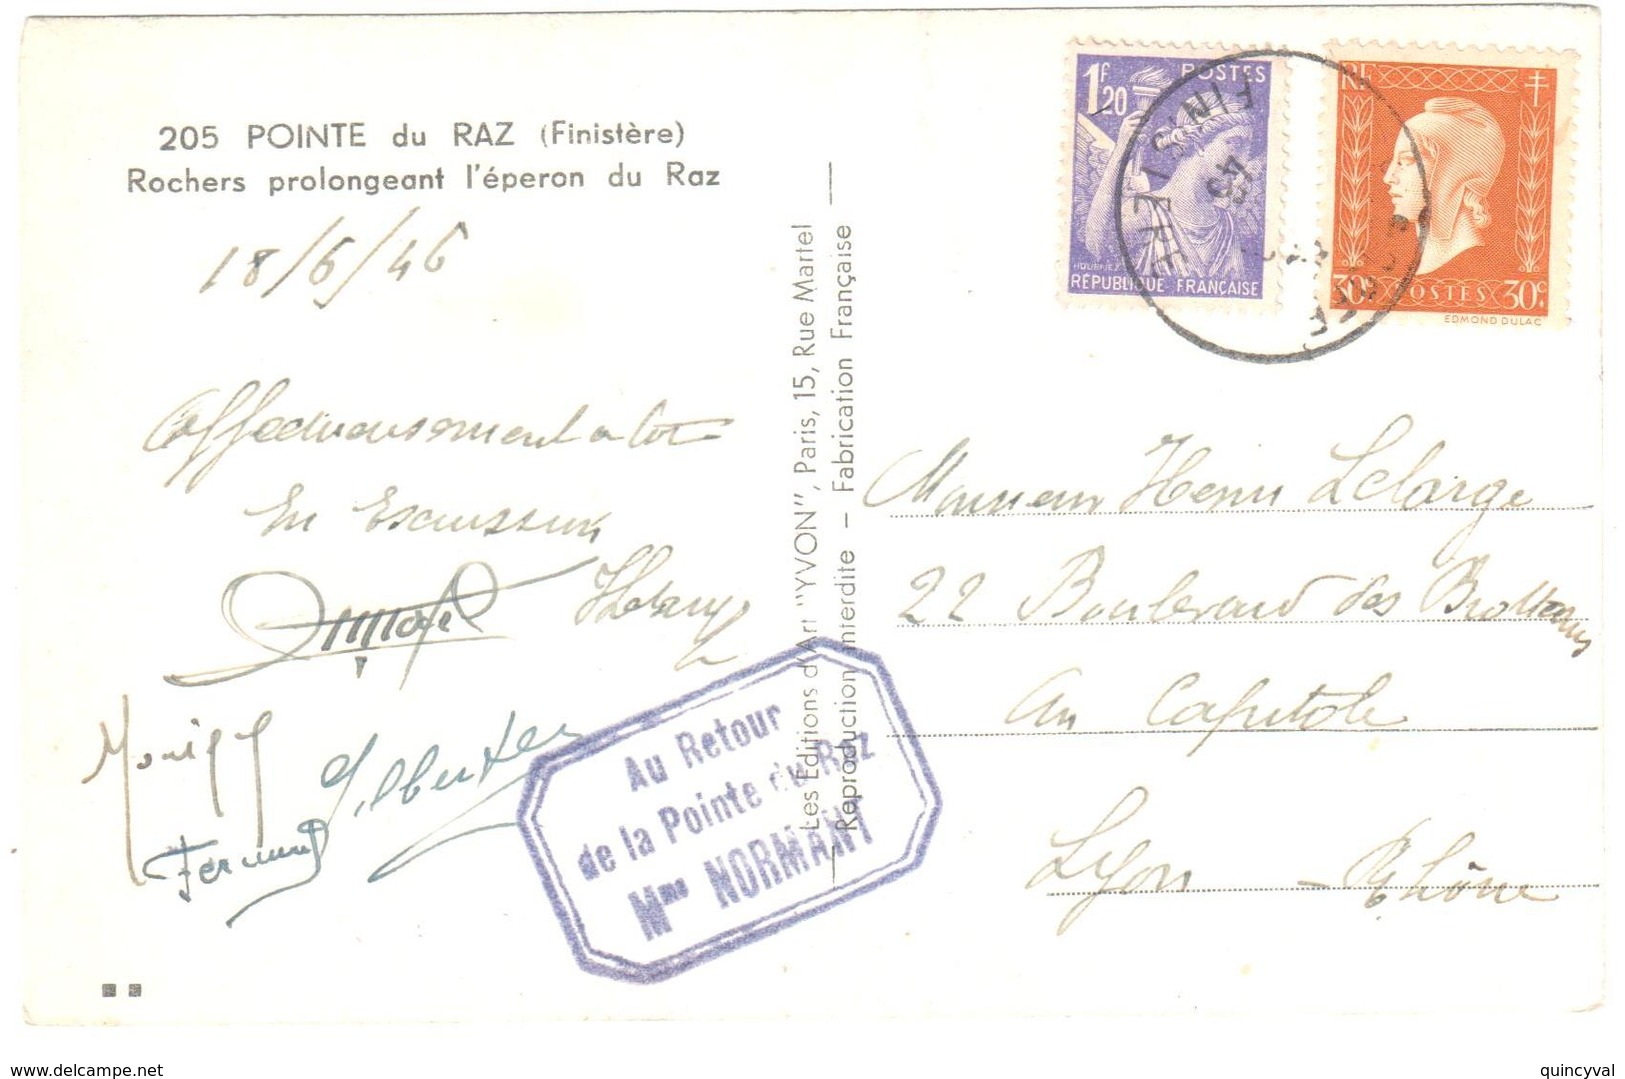 205 POINTE du RAZ (Finistère)
Rochers prolongeant l'éperon du Raz
18/6/46
Affectueusement à toi
En Excursion
Monique
Gilberte
Fernand
Au Retour
de la Pointe du Raz
Mme NORMANT
Les Editions d'Art "YVON", Paris, 15, Rue Martel
Reproduction interdite — Fabrication Française
1F20
POSTES
RÉPUBLIQUE FRANÇAISE
FINISTERE
RF
30c POSTES 30c
EDMOND DULAC
Monsieur Henri Lelarge
22 Boulevard des Brotteaux
Au Capitole
Lyon - Rhône
www.delcampe.net
quincyval